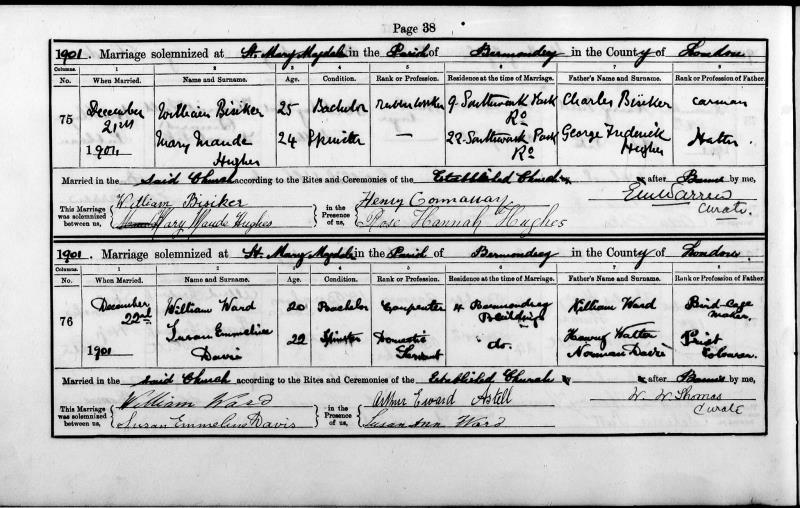 Page 38
1901. Marriage solemnized at St. Mary Magdale in the Parish of Bermondsey in the County of London
Columns. 1 2 3 4 5 6 7 8
No. When Married. Name and Surname. Age. Condition. Rank or Profession. Residence at the time of Marriage. Father's Name and Surname. Rank or Profession of Father.
75 December William Bisiker 25 Bachelor 9 Southwark Park Charles Bisiker Carman
21st Ro
Mary Maude 24 Spinster — 22 Southwark Park George Frederick Hatter
1901 Hughes Ro Hughes
Married in the said Church according to the Rites and Ceremonies of the Established Church after Banns by me,
This Marriage was solemnized between us, William Bisiker in the Presence of us, Henry Connaway
Mary Maude Hughes Rose Hannah Hughes Curate
1901. Marriage solemnized at St. Mary Magdale in the Parish of Bermondsey in the County of London
Columns. 1 2 3 4 5 6 7 8
No. When Married. Name and Surname. Age. Condition. Rank or Profession. Residence at the time of Marriage. Father's Name and Surname. Rank or Profession of Father.
76 December William Ward 20 Bachelor Carpenter 4 Bermondsey William Ward Bird-Cage
22nd Buildings maker
Susan Emmeline 22 Spinster Domestic do. Henry Walter Print
1901 Davis Servant Norman Davis Colourer
Married in the said Church according to the Rites and Ceremonies of the Established Church after Banns by me,
This Marriage was solemnized between us, William Ward in the Presence of us, Arthur Edward Astell W. W. Thomas
Susan Emmeline Davis Susan Ann Ward Curate